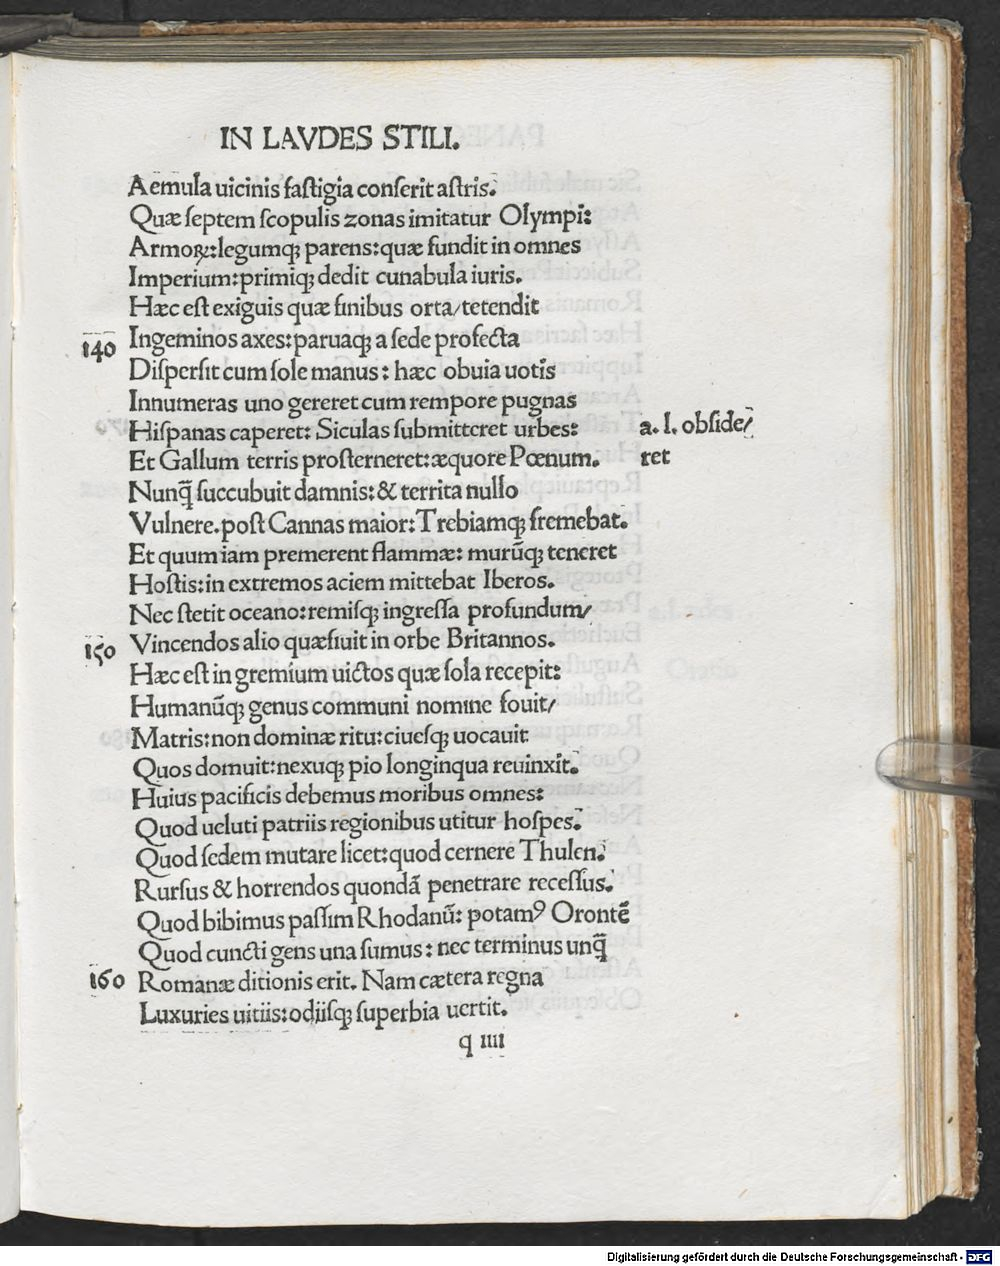 IN LAVDES STILI.
Aemula uicinis fastigia conserit astris.
Quæ septem scopulis zonas imitatur Olympi:
Armoꝝ:legumqꝫ parens:quæ fundit in omnes
Imperium:primiqꝫ dedit cunabula iuris.
Hæc est exiguis quæ finibus orta/tetendit
140 Ingeminos axes:paruaqꝫ a sede profecta
Dispersit cum sole manus: hæc obuia uotis
Innumeras uno gereret cum rempore pugnas
Hispanas caperet: Siculas submitteret urbes: a. l. obside/
Et Gallum terris prosterneret:æquore Pœnum. ret
Nunq̃ succubuit damnis:& territa nullo
Vulnere.post Cannas maior:Trebiamqꝫ fremebat.
Et quum iam premerent flammæ: murũqꝫ teneret
Hostis:in extremos aciem mittebat Iberos.
Nec stetit oceano:remisqꝫ ingressa profundum/
150 Vincendos alio quæsiuit in orbe Britannos.
Hæc est in gremium uictos quæ sola recepit:
Humanũqꝫ genus communi nomine fouit/
Matris:non dominæ ritu:ciuesqꝫ uocauit
Quos domuit:nexuqꝫ pio longinqua reuinxit.
Huius pacificis debemus moribus omnes:
Quod ueluti patriis regionibus utitur hospes.
Quod sedem mutare licet:quod cernere Thulen.
Rursus & horrendos quondã penetrare recessus.
Quod bibimus passim Rhodanũ: potamꝰ Orontẽ
Quod cuncti gens una sumus: nec terminus unq̃
160 Romanæ ditionis erit. Nam cætera regna
Luxuries uitiis:odiisqꝫ superbia uertit.
q iiii
Digitalisierung gefördert durch die Deutsche Forschungsgemeinschaft - DFG